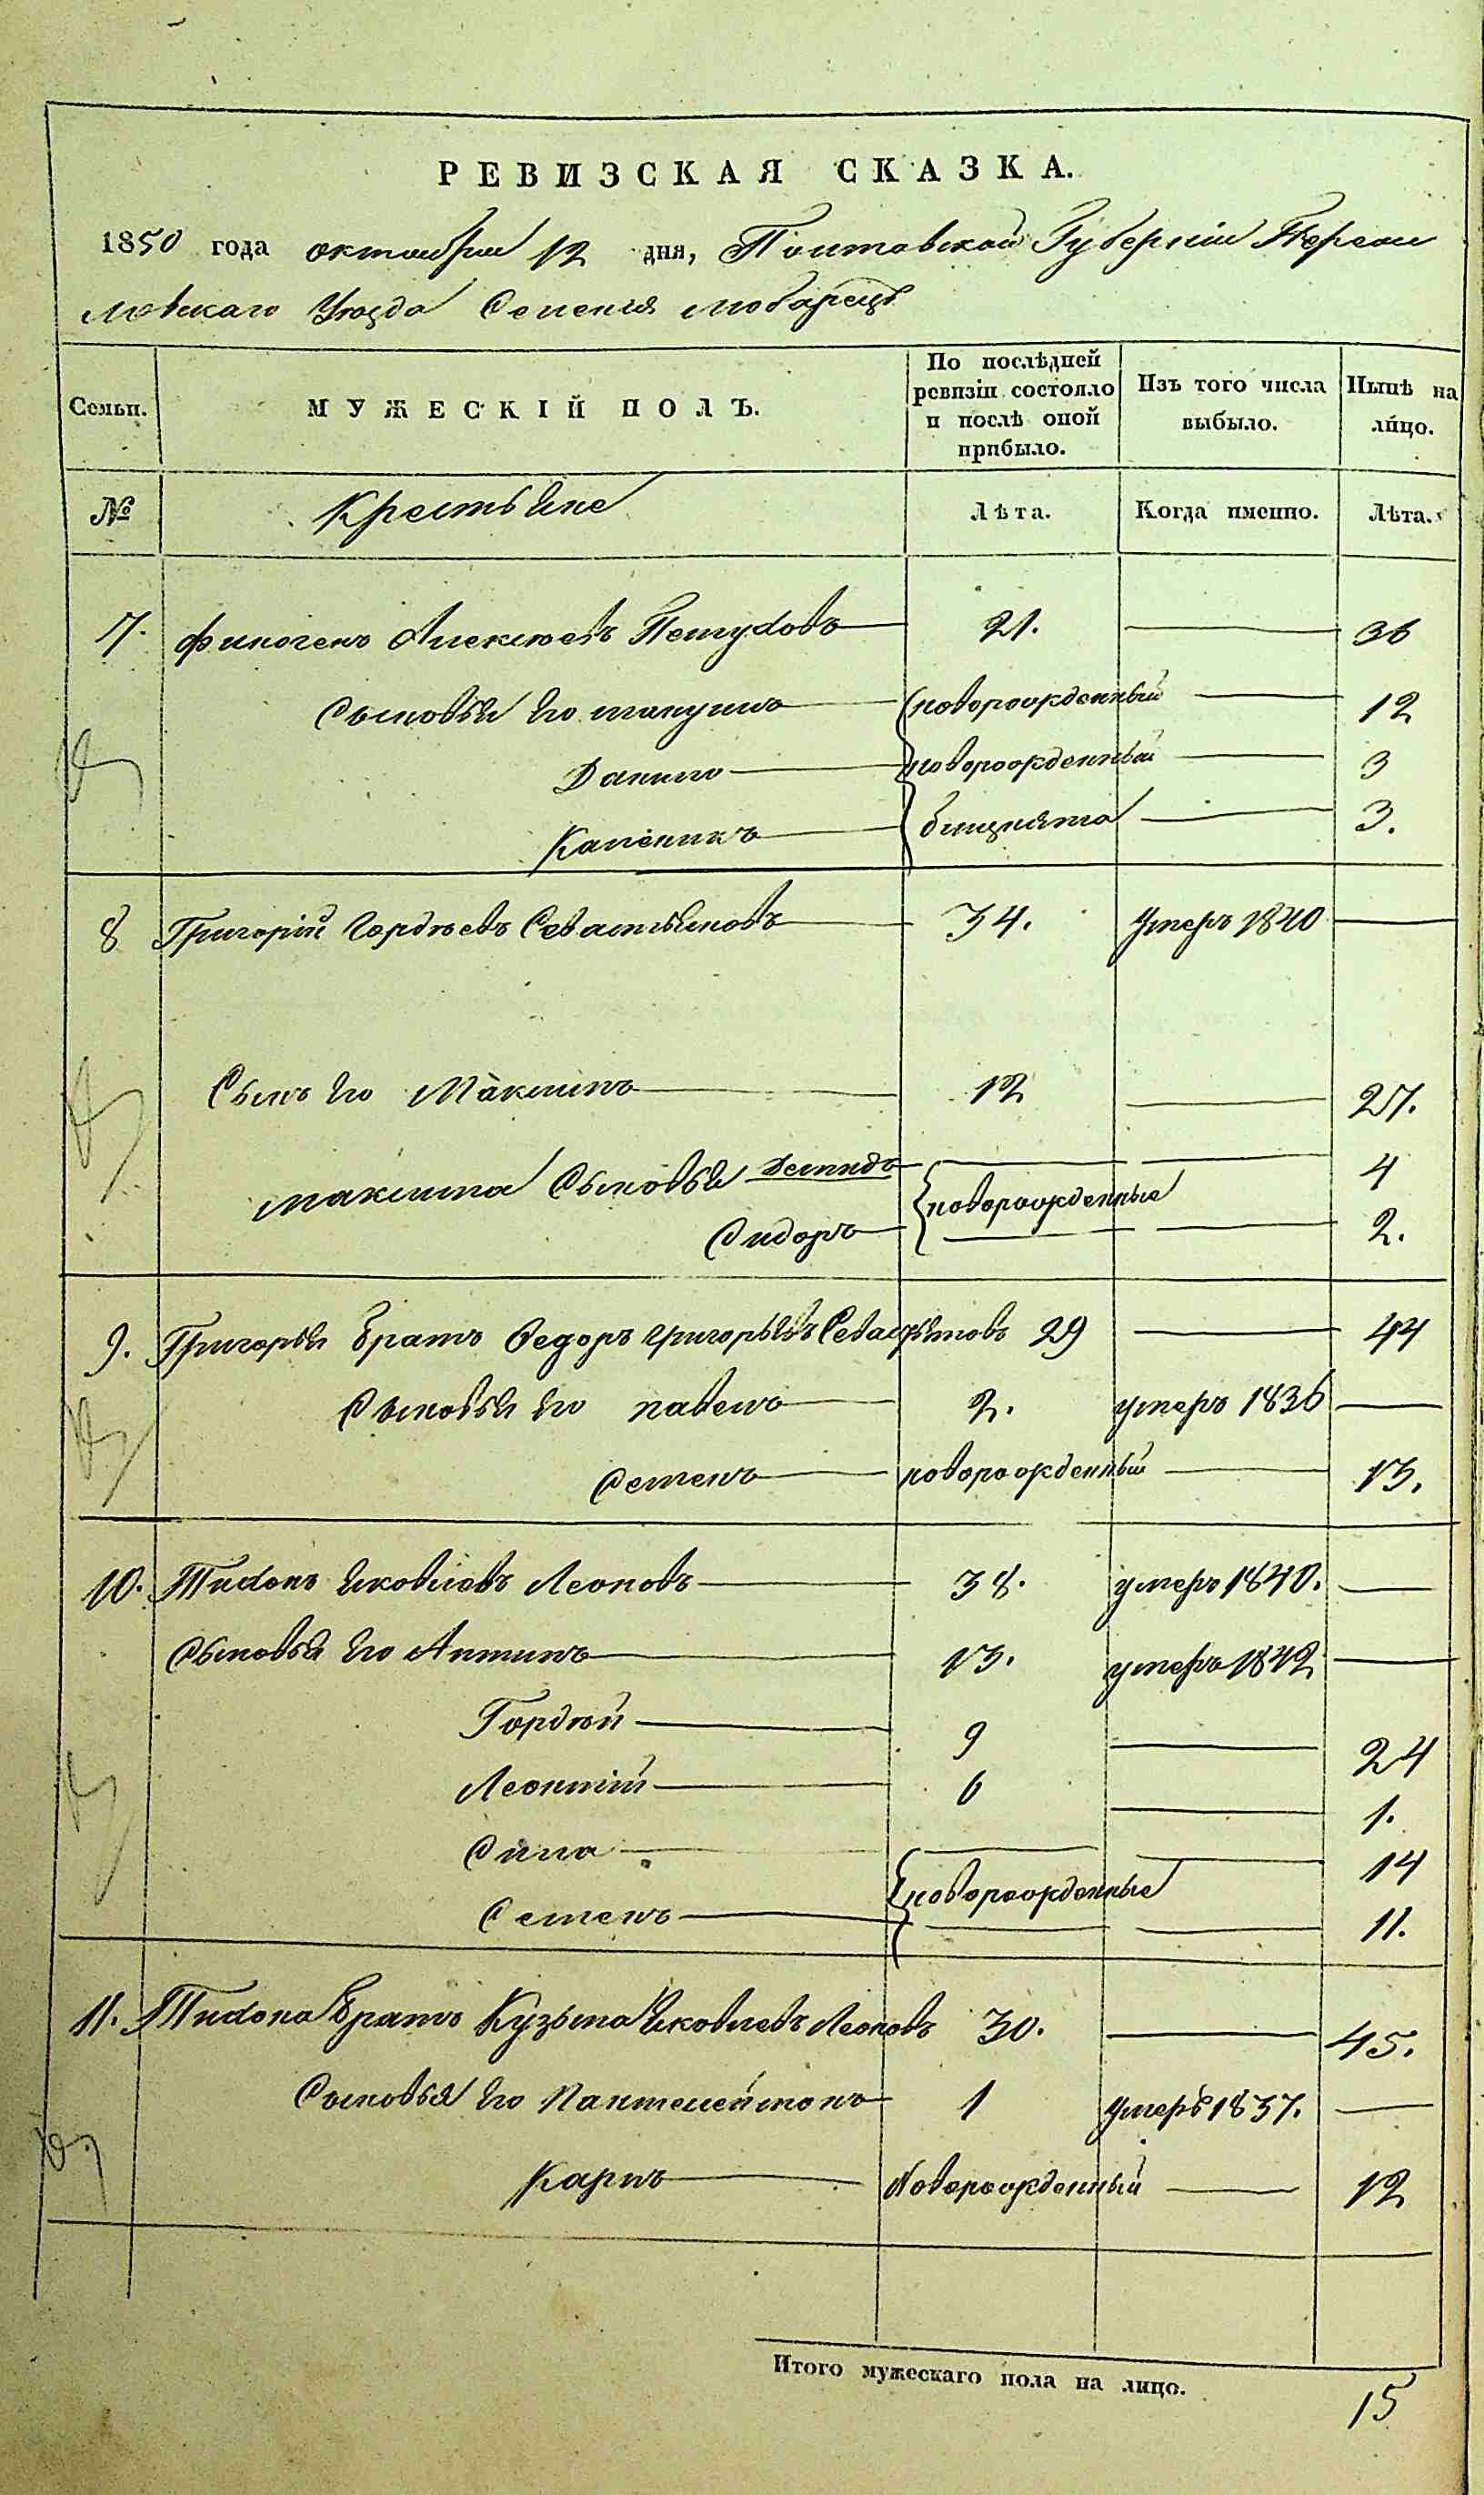 РЕВИЗСКАЯ СКАЗКА.
1850 года октября 12 дня, Полтавской Губерніи Переяс
лавскаго Уѣзда Селенія Любарецъ
Семьи. МУЖЕСКІЙ ПОЛЪ. По послѣдней ревизіи состояло и послѣ оной прибыло. Изъ того числа выбыло. Нынѣ на лицо.
№ Крестьяне Лѣта. Когда именно. Лѣта.
7. Финогенъ Алексѣевъ Петуховъ 21. 36
Сыновья Его новорожденный 12
Данило новорожденный 3
Каленикъ близнята 3.
8 Григорій Гордѣевъ Севастьяновъ 34. умеръ 1840
Сынъ Его Максимъ 12 27.
Максима Сыновья Демидъ 4
новорожденные
Сидоръ 2.
9. Григорья Братъ Федоръ Григорьевъ Севастьяновъ 29 44
Сыновья Его Павелъ 2. умеръ 1836
Семенъ новорожденный 13.
10. Тихонъ Яковлевъ Леоновъ 38. умеръ 1840.
Сыновья Его Антипъ 13. умеръ 1842
Гордѣй 9 24
Леонтій 6 1.
Сила 14
новорожденные
Семенъ 11.
11. Тихона Братъ Кузьма Яковлевъ Леоновъ 30. 45.
Сыновья Его Пантелеймонъ 1 умеръ 1837.
Карпъ Новорожденный 12
Итого мужескаго пола на лицо. 15